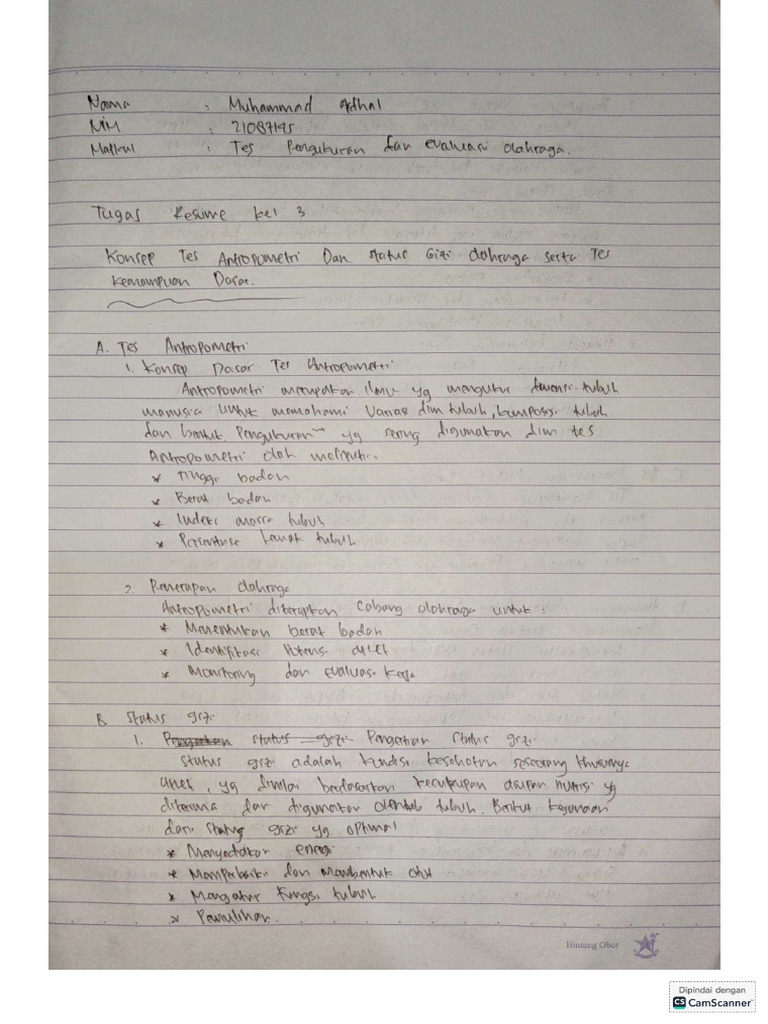 Nama : Muhammad Adhal
NIM : 21087195
Matkul : Tes Pengukuran dan evaluasi olahraga.
Tugas Resume kel 3
Konsep Tes Antropometri Dan Status Gizi olahraga serta Tes
Kemampuan Dasar.
A. Tes Antropometri
1. Konsep Dasar Tes Antropometri
Antropometri merupakan ilmu yg mengukur dimensi tubuh
manusia untuk memahami Variasi dlm tubuh, komposisi tubuh
dan bentuk. Pengukuran yg sering digunakan dlm tes
Antropometri meliputi.
* Tinggi badan
* Berat badan
* Indeks massa tubuh
* Persentase lemak tubuh
2. Penerapan olahraga
Antropometri diterapkan Cabang olahraga untuk :
* Menentukan berat badan
* Identifikasi Potensi atlet
* Monitoring dan evaluasi kerja
B. Status gizi
1. Pengertian Status gizi
Status gizi adalah kondisi kesehatan seseorang khususnya
atlet, yg dinilai berdasarkan kecukupan asupan nutrisi yg
diterima dan digunakan oleh tubuh. Berikut kegunaan
dari status gizi yg optimal
* Menyediakan energi
* Memperbaiki dan membentuk otot
* Mengatur fungsi tubuh
* Pemulihan.
Bintang Obor
Dipindai dengan
CS CamScanner